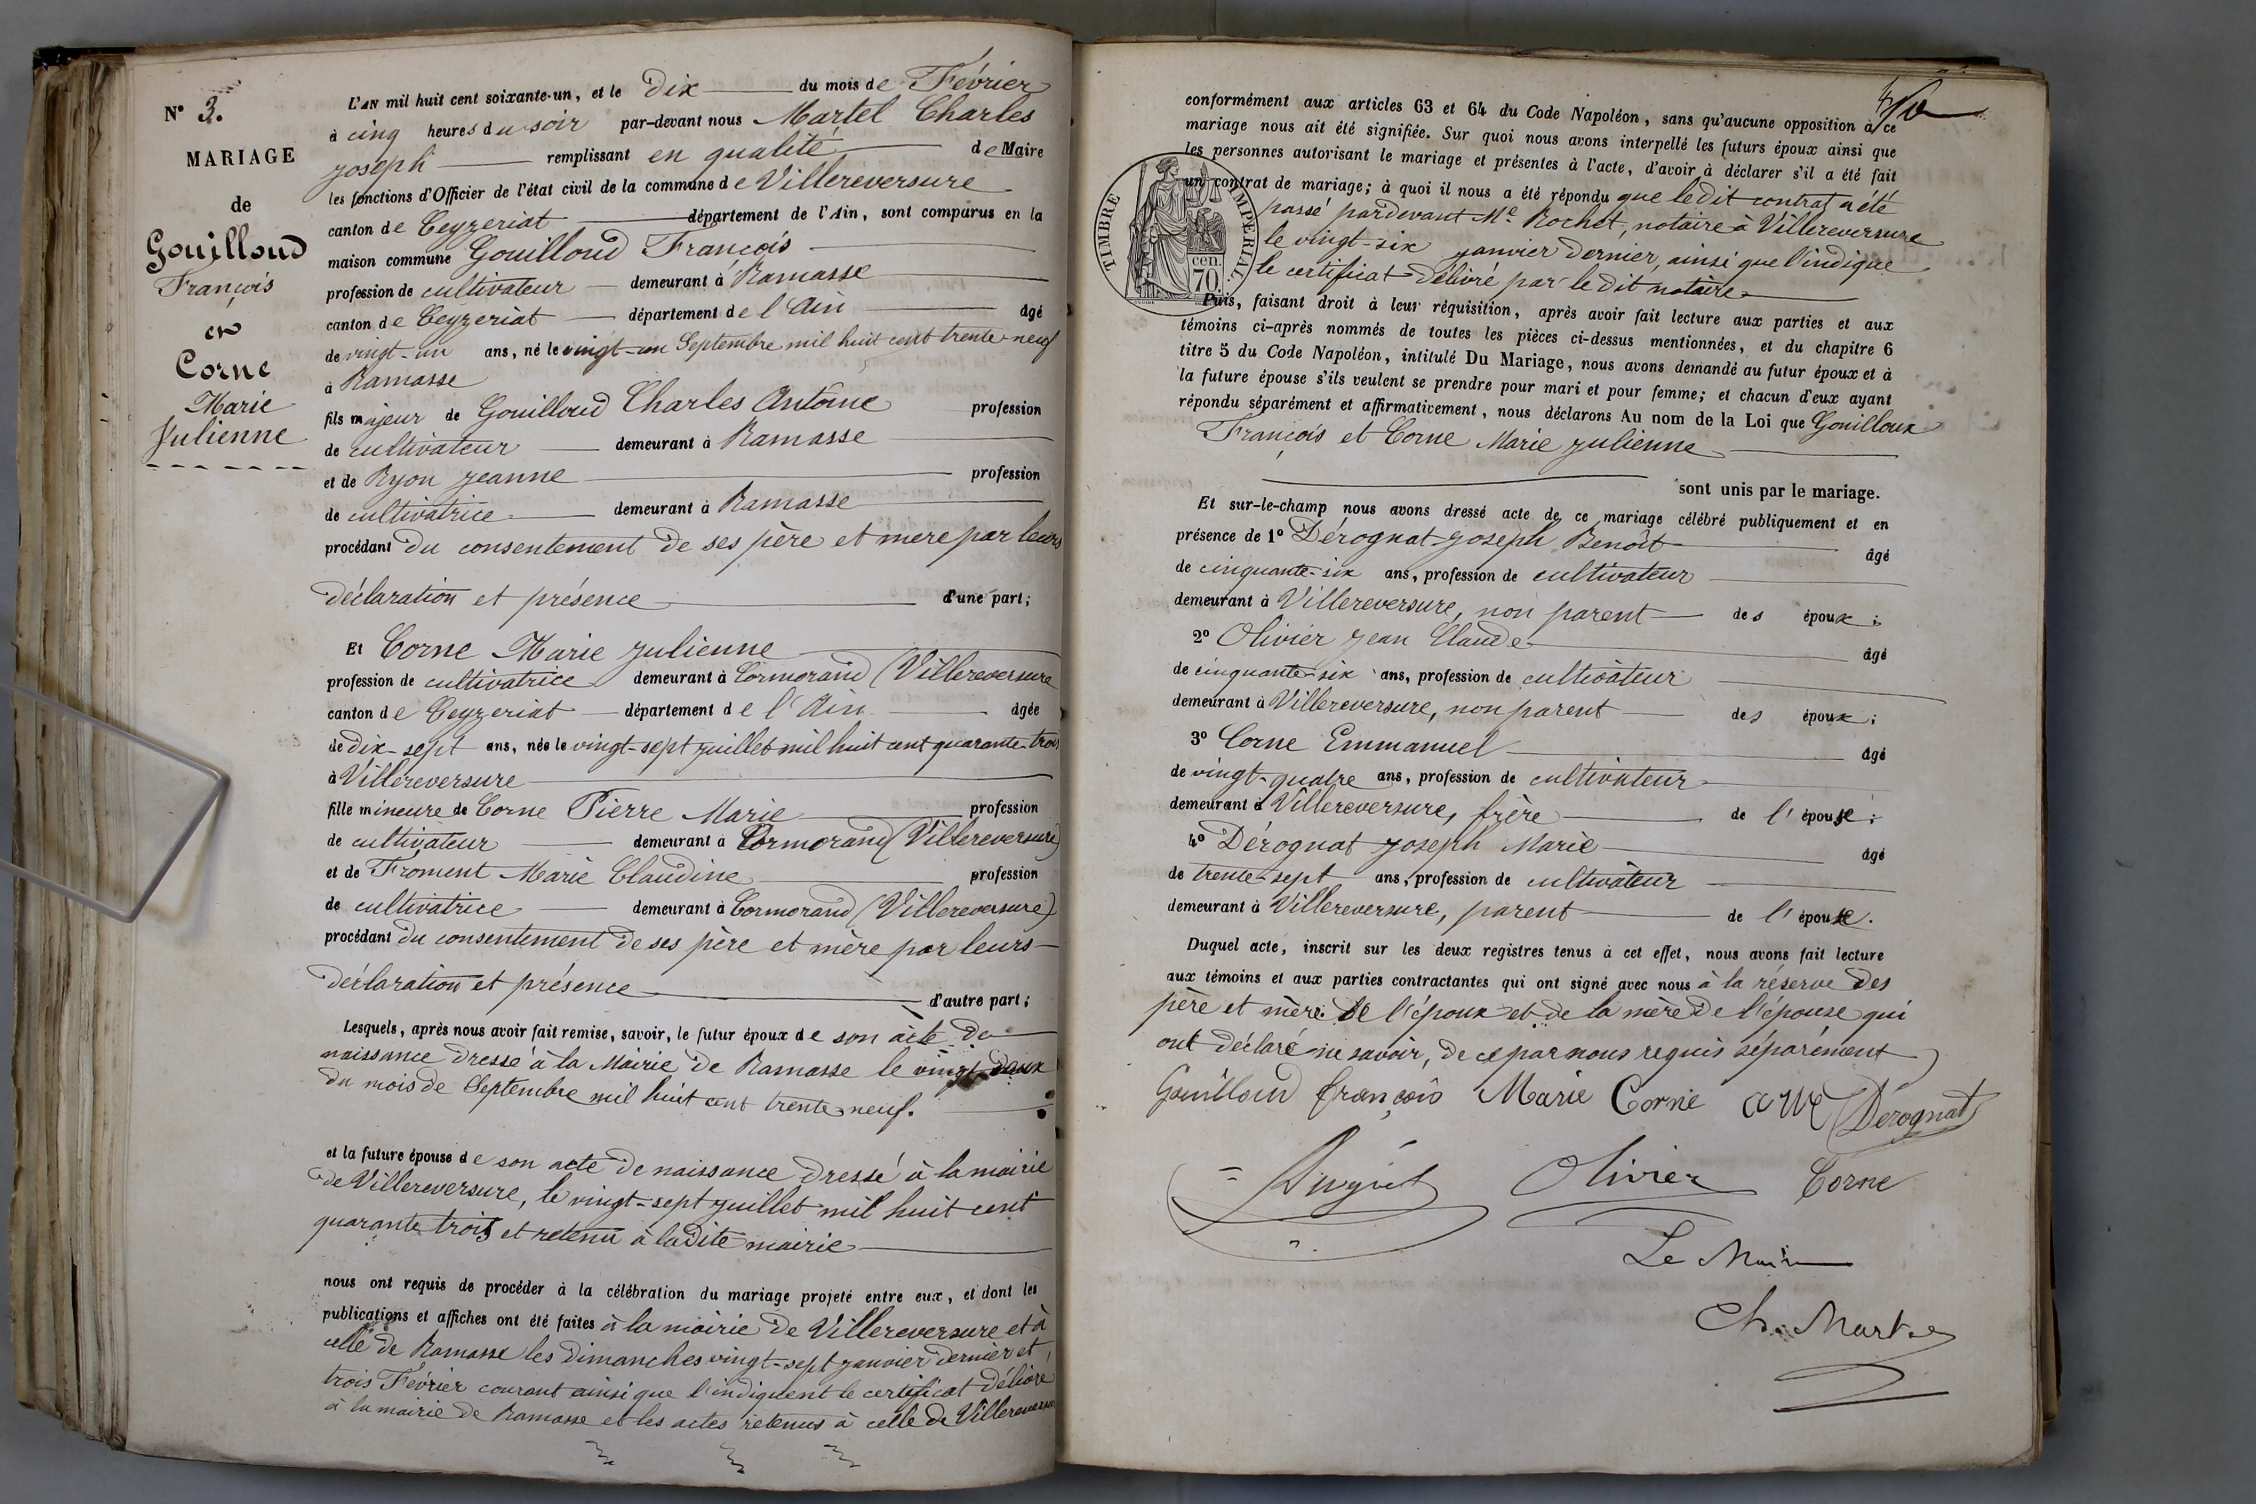 N° 3.
MARIAGE
de
Gouilloud
François
et
Corne
Marie
Julienne
L'AN mil huit cent soixante-un, et le dix du mois de Février
à cinq heures du soir par-devant nous Martel Charles
joseph remplissant en qualité de Maire
les fonctions d'Officier de l'état civil de la commune de Villereversure
canton de Ceyzeriat département de l'Ain, sont comparus en la
maison commune Gouilloud François
profession de cultivateur demeurant à Ramasse
canton de Ceyzeriat département de l'Ain âgé
de vingt-un ans, né le vingt-un Septembre mil huit cent trente-neuf
à Ramasse
fils majeur de Gouilloud Charles Antoine profession
de cultivateur demeurant à Ramasse
et de Ryon jeanne profession
de cultivatrice demeurant à Ramasse
procédant du consentement de ses père et mere par leurs
déclaration et présence d'une part;
Et Corne Marie julienne
profession de cultivatrice demeurant à Cormorand (Villereversure
canton de Ceyzeriat département de l'Ain âgée
de dix-sept ans, née le vingt-sept juillet mil huit cent quarante-trois
à Villereversure
fille mineure de Corne Pierre Marie profession
de cultivateur demeurant à Cormorand (Villereversure)
et de Froment Marie Claudine profession
de cultivatrice demeurant à Cormorand (Villereversure)
procédant du consentement de ses père et mère par leurs
déclaration et présence d'autre part;
Lesquels, après nous avoir fait remise, savoir, le futur époux de son acte de
naissance dressé à la Mairie de Ramasse le vingt-deux
du mois de Septembre mil huit cent trente neuf.
et la future épouse de son acte de naissance dressé à la mairie
de Villereversure, le vingt-sept juillet mil huit cent
quarante trois et retenu à ladite mairie
nous ont requis de procéder à la célébration du mariage projeté entre eux, et dont les
publications et affiches ont été faites à la mairie de Villereversure et à
celle de Ramasse les dimanches vingt-sept janvier dernier et
trois Février courant ainsi que l'indiquent le certificat délivré
à la mairie de Ramasse et les actes retenus à celle de Villereversure
conformément aux articles 63 et 64 du Code Napoléon, sans qu'aucune opposition à ce
mariage nous ait été signifiée. Sur quoi nous avons interpellé les futurs époux ainsi que
les personnes autorisant le mariage et présentes à l'acte, d'avoir à déclarer s'il a été fait
un contrat de mariage; à quoi il nous a été répondu que le dit contrat a été
passé pardevant Me Rochet, notaire à Villereversure
le vingt-six janvier dernier, ainsi que l'indique
le certificat délivré par le dit notaire
TIMBRE IMPERIAL
cen.
70
Puis, faisant droit à leur réquisition, après avoir fait lecture aux parties et aux
témoins ci-après nommés de toutes les pièces ci-dessus mentionnées, et du chapitre 6
titre 5 du Code Napoléon, intitulé Du Mariage, nous avons demandé au futur époux et à
la future épouse s'ils veulent se prendre pour mari et pour femme; et chacun d'eux ayant
répondu séparément et affirmativement, nous déclarons Au nom de la Loi que Gouilloux
François et Corne Marie julienne
sont unis par le mariage.
Et sur-le-champ nous avons dressé acte de ce mariage célébré publiquement et en
présence de 1° Dérognat joseph Benoît âgé
de cinquante-six ans, profession de cultivateur
demeurant à Villereversure, non parent des époux;
2° Olivier jean Claude âgé
de cinquante-six ans, profession de cultivateur
demeurant à Villereversure, non parent des époux;
3° Corne Emmanuel âgé
de vingt-quatre ans, profession de cultivateur
demeurant à Villereversure, frère de l'épouse;
4° Dérognat joseph Marie âgé
de trente-sept ans, profession de cultivateur
demeurant à Villereversure, parent de l'épouse.
Duquel acte, inscrit sur les deux registres tenus à cet effet, nous avons fait lecture
aux témoins et aux parties contractantes qui ont signé avec nous à la réserve des
père et mère de l'époux et de la mère de l'épouse qui
ont déclaré ne savoir, de ce par nous requis séparément
Gouilloud françois Marie Corne Dérognat
Olivier Corne
Le Maire
Ch. Martel